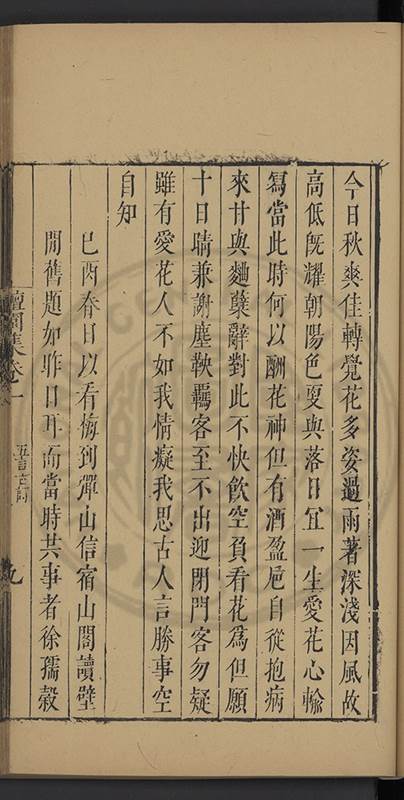 今日秋爽佳轉覺花多姿過雨著深淺因風故
高低旣耀朝陽色夏與落日冝一生愛花心輸
寫當此時何以酬花神但有酒盈巵自從抱病
來甘與麯櫱辭對此不快飲空負看花爲但願
十日晴兼謝塵鞅羈客至不出迎閉門客勿疑
雖有愛花人不如我情癡我思古人言勝事空
自知
巳酉春日以看梅到彈山信宿山閣讀壁
間舊題如昨日耳而當時共事者徐孺穀
檀園集卷一
五言古詩
九